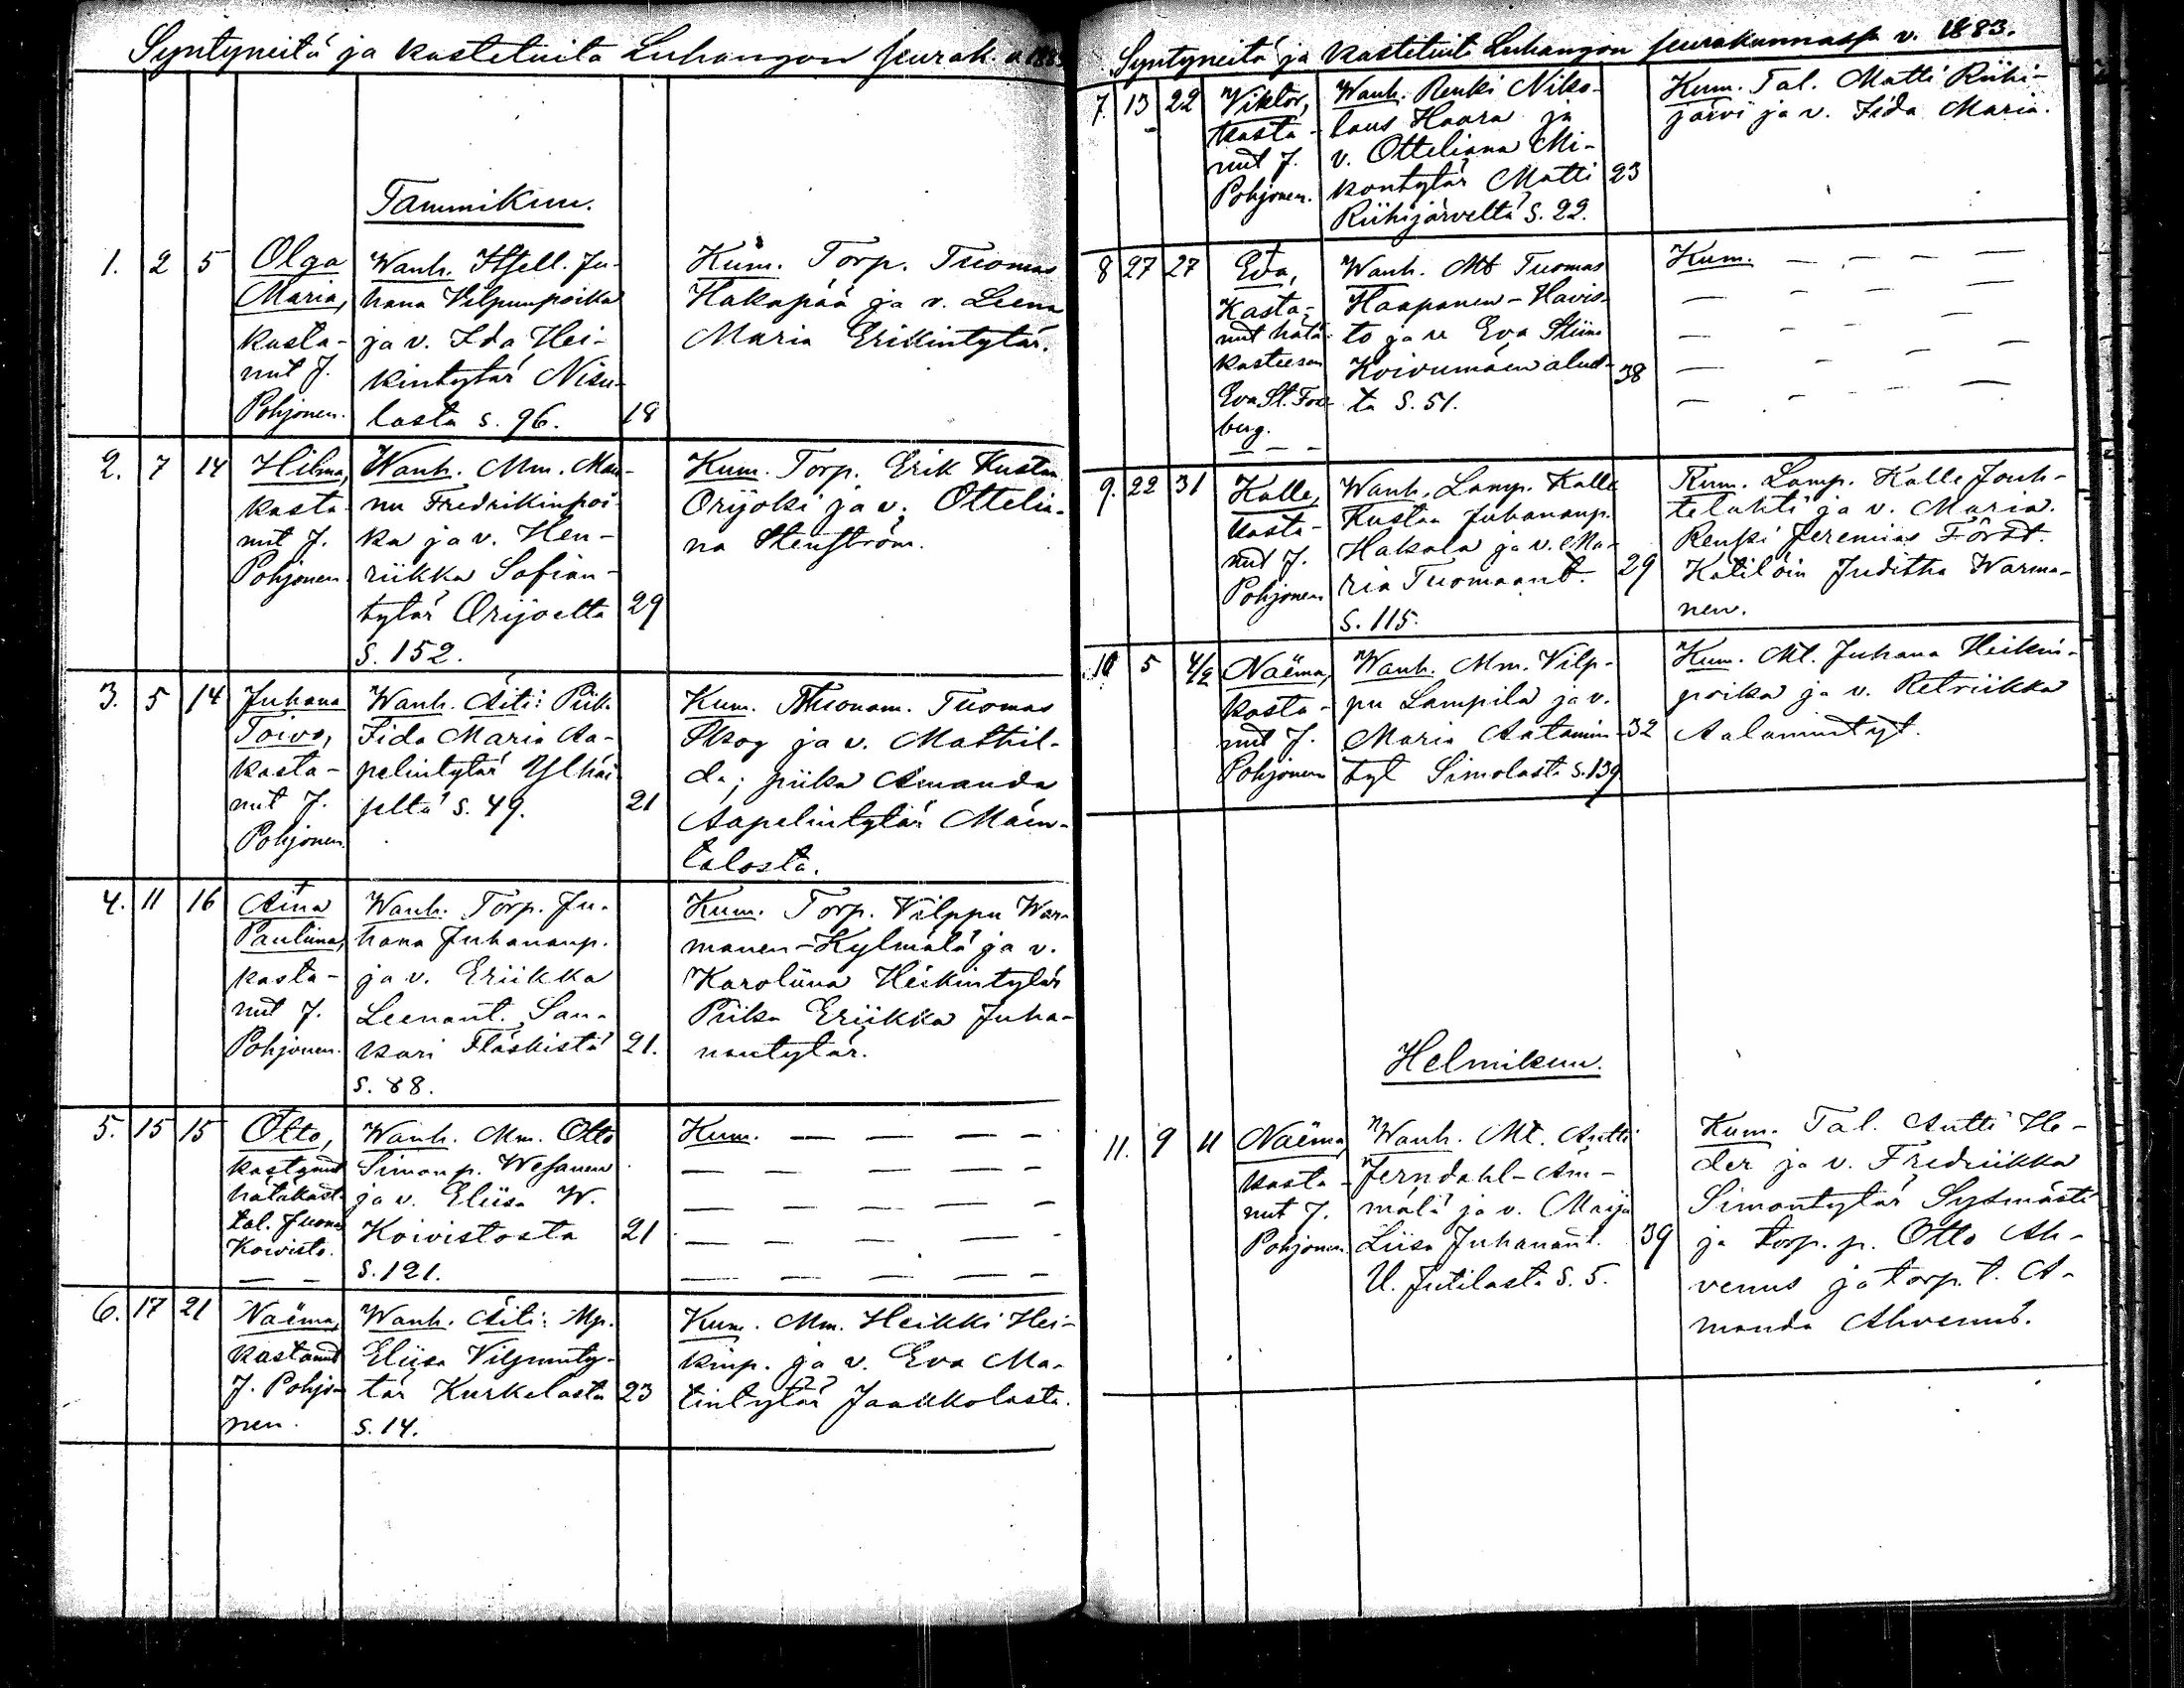 Syntyneitä ja kastetuita Luhangon seurak. v. 1883
Tammikuu.
1. 2 5
Olga
Maria,
kasta-
nut J.
Pohjonen.
Wanh. Itsell. Ju-
hana Vilpunpoika
ja v. Ida Hei-
kintytär Nisu-
lasta s. 96.
18
Kum. Torp. Tuomas
Hakapää ja v. Leena
Maria Erikintytär.
2. 7 14
Hilma,
kasta-
nut J.
Pohjonen
Wanh. Mm. Man-
nu Fredrikinpoi-
ka ja v. Hen-
riikka Sofian-
tytär Orijoelta
s. 152.
29
Kum. Torp. Erik Kustaa
Orijoki ja v. Ottelia-
na Stenström.
3. 5 14
Juhana
Toivo,
kasta-
nut J.
Pohjonen.
Wanh. Äiti: Piik.
Fida Maria Aa-
pelintytär Ylhäi-
seltä s. 49.
21
Kum. Tuomas
Skog ja v. Mathil-
da; piika Amanda
Aapelintytär Mäen-
talosta.
4. 11 16
Aina
Pauliina,
kasta-
nut J.
Pohjonen.
Wanh. Torp. Ju-
hana Juhananp.
ja v. Eriikka
Leenant. San-
kari Fläskistä
s. 88.
21.
Kum. Torp. Vilppu War-
manen-Kylmälä ja v.
Karoliina Heikintytär
Piika Eriikka Juha-
nantytär.
5. 15 15
Otto,
kastanut
hätäkast.
tal. Juonas
Koivisto.
— —
Wanh. Mm. Otto
Simonp. Wesanen
ja v. Eliisa W.
Koivistosta
s. 121.
21
Kum. — — — —
— — — — —
— — — — —
— — — — —
— — — — —
6. 17 21
Naëma,
kastanut
J. Pohjo-
nen.
Wanh. Äiti: Mp.
Eliisa Vilpunty-
tär Kurkelasta
s. 14.
23
Kum. Mm. Heikki Hei-
kinp. ja v. Eva Ma-
tintytär Jaakkolasta.
Syntyneitä ja kastetuita Luhangon seurakunnassa v. 1883.
7. 13 22
Viktor,
kasta-
nut J.
Pohjonen.
Wanh. Renki Niko-
laus Haara ja
v. Otteliana Mi-
kontytär Matti
Riihijärveltä s. 22.
23
Kum. Tal. Matti Riihi-
järvi ja v. Fida Maria.
8 27 27
Eva,
Kasta-
nut hätä-
kasteesen
Eva St. Fors-
berg.
— — —
Wanh. Mt Tuomas
Haapanen-Havis-
to ja v. Eva Stiina
Koivumäen alus-
ta s. 51.
38
Kum. — — — —
— — — — —
— — — — —
— — — — —
— — — — —
9. 22 31
Kalle,
kasta-
nut J.
Pohjonen
Wanh. Lamp. Kalle
Kustaa Juhananp.
Hakala ja v. Ma-
ria Tuomaant.
s. 115.
29
Kum. Lamp. Kalle Jouh-
telahti ja v. Maria.
Renki Jeremias Först.
Kätilöin Juditha Warma-
nen.
10 5 4/2
Naëma,
kasta-
nut J.
Pohjonen
Wanh. Mm. Vilp-
pu Lampila ja v.
Maria Aatamin-
tyt Simolasta s. 139
32
Kum. Mt. Juhana Heikin-
poika ja v. Retriikka
Aalamintyt.
Helmikuu.
11. 9 11
Naëma,
kasta-
nut J.
Pohjonen.
Wanh. Mt. Antti
Jerndahl-Äm-
mälä ja v. Maija
Liisa Juhanant.
U. Jutilasta s. 5.
39
Kum. Tal. Antti He-
der ja v. Fredriikka
Simontytär Sysmästä
ja torp. p. Otto Ah-
venus ja torp. t. A-
manda Ahvenus.